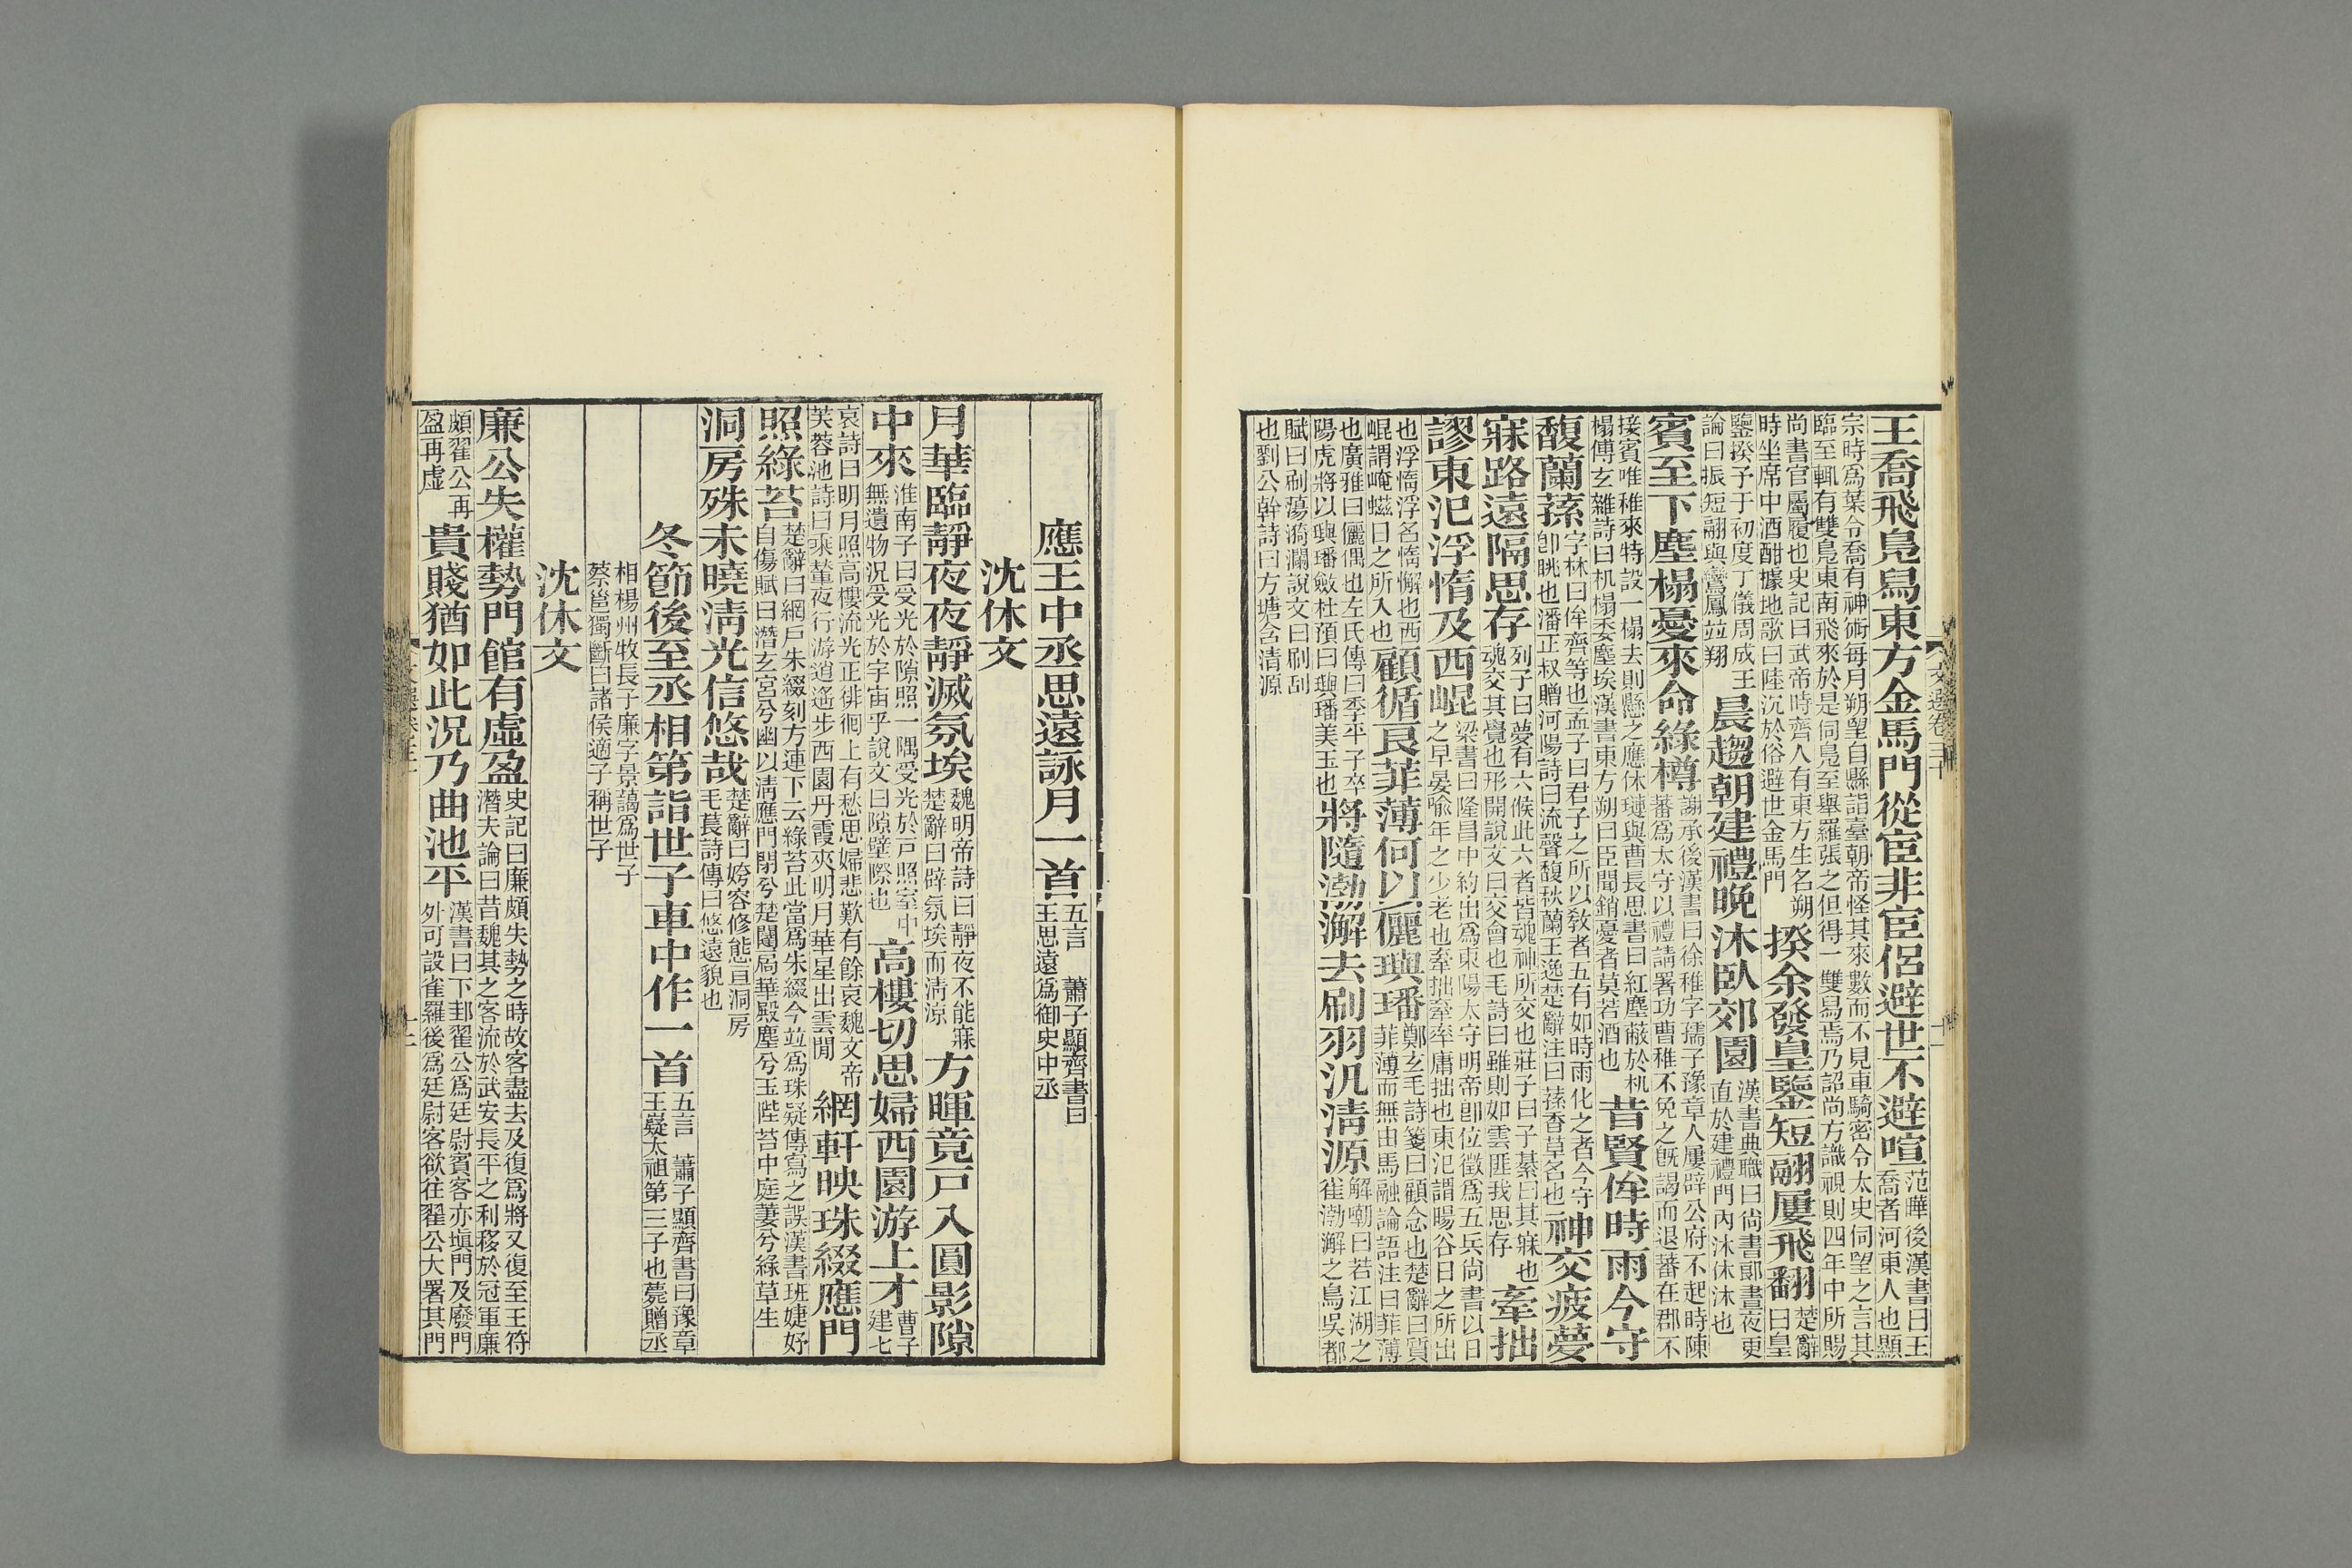 王喬飛鳧舄東方金馬門從宦非宦侶避世不避喧范曄後漢書曰王喬者河東人也顯
宗時爲葉令喬有神術每月朔望自縣詣臺朝帝怪其來數而不見車騎密令太史伺望之言其
臨至輒有雙鳧東南飛來於是伺鳧至舉羅張之但得一雙舄焉乃詔尚方識視則四年中所賜
尚書官屬履也史記曰武帝時齊人有東方生名朔
時坐席中酒酣據地歌曰陸沉於俗避世金馬門
揆余發皇鑒短翮屢飛翻楚辭曰皇
鑒揆予于初度丁儀周成王
論曰振短翮與鸞鳳竝翔
晨趨朝建禮晚沐臥郊園漢書典職曰尚書郎晝夜更直於建禮門內沐休沐也
賓至下塵榻憂來命綠樽謝承後漢書曰徐稚字孺子豫章人屢辟公府不起時陳蕃爲太守以禮請署功曹稚不免之旣謁而退蕃在郡不
接賓唯稚來特設一榻去則懸之應休璉與曹長思書曰紅塵蔽於机
榻傅玄雜詩曰机榻委塵埃漢書東方朔曰臣聞銷憂者莫若酒也
昔賢侔時雨今守
馥蘭蓀字林曰侔齊等也孟子曰君子之所以敎者五有如時雨化之者今守卽眺也潘正叔贈河陽詩曰流聲馥秋蘭王逸楚辭注曰蓀香草名也
神交疲夢
寐路遠隔思存列子曰夢有六候此六者皆魂神所交也莊子曰子綦曰其寐也魂交其覺也形開說文曰交會也毛詩曰雖則如雲匪我思存
牽拙
謬東汜浮惰及西崐梁書曰隆昌中約出爲東陽太守明帝卽位徵爲五兵尚書以日之早晏喻年之少老也牽拙牽率庸拙也東汜謂暘谷日之所出
也浮惰浮名惰懈也西
崐謂崦嵫日之所入也
顧循良菲薄何以儷璵璠鄭玄毛詩箋曰顧念也楚辭曰質菲薄而無由馬融論語注曰菲薄
也廣雅曰儷偶也左氏傳曰季平子卒
陽虎將以璵璠斂杜預曰璵璠美玉也
將隨渤澥去刷羽汎淸源解嘲曰若江湖之雀渤澥之鳥吳都
賦曰刷蕩漪瀾說文曰刷刮
也劉公幹詩曰方塘含清源
文選卷三十
十二
應王中丞思遠詠月一首五言 蕭子顯齊書曰王思遠爲御史中丞
沈休文
月華臨靜夜夜靜滅氛埃魏明帝詩曰靜夜不能寐楚辭曰辟氛埃而淸涼
方暉竟戶入圓影隙
中來淮南子曰受光於隙照一隅受光於戶照室中無遺物況受光於宇宙乎說文曰隙壁際也
高樓切思婦西園游上才曹子建七
哀詩曰明月照高樓流光正徘徊上有愁思婦悲歎有餘哀魏文帝
芙蓉池詩曰乘輦夜行游逍遙步西園丹霞夾明月華星出雲閒
網軒映珠綴應門
照綠苔楚辭曰網戶朱綴刻方連下云綠苔此當爲朱綴今竝爲珠疑傳寫之誤漢書班婕妤自傷賦曰潛玄宮兮幽以淸應門閉兮楚闥扃華殿塵兮玉陛苔中庭萋兮綠草生
洞房殊未曉淸光信悠哉楚辭曰姱容修態亘洞房毛萇詩傳曰悠遠貌也
冬節後至丞相第詣世子車中作一首五言 蕭子顯齊書曰豫章王嶷太祖第三子也薨贈丞
相楊州牧長子廉字景藹爲世子
蔡邕獨斷曰諸侯適子稱世子
沈休文
廉公失權勢門館有虛盈史記曰廉頗失勢之時故客盡去及復爲將又復至王符潛夫論曰昔魏其之客流於武安長平之利移於冠軍廉
頗翟公再
盈再虛
貴賤猶如此況乃曲池平漢書曰下邽翟公爲廷尉賓客亦塡門及廢門外可設雀羅後爲廷尉客欲往翟公大署其門